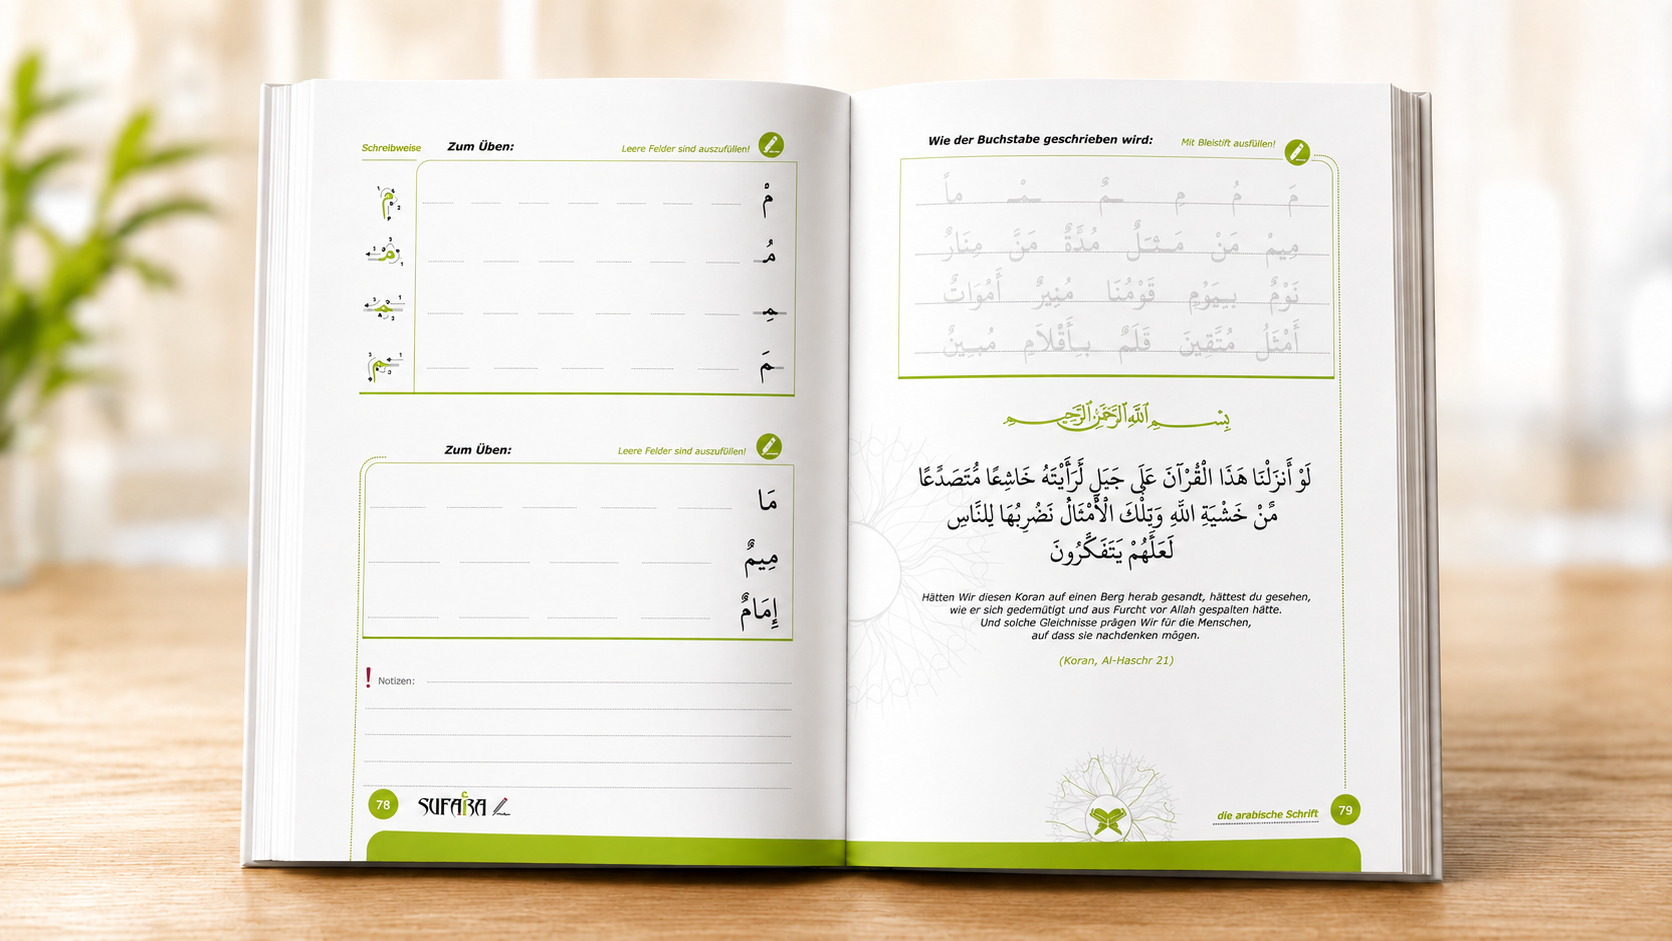 Schreibweise Zum Üben: Leere Felder sind auszufüllen!
مْ
مُ
مِ
مَ
Zum Üben: Leere Felder sind auszufüllen!
مَا
مِيمٌ
إِمَامٌ
! Notizen:
78 SUFARA
Wie der Buchstabe geschrieben wird: Mit Bleistift ausfüllen!
مَ مُ مِ مٌ مْ ماً
مِيمْ مَنْ مَثَلٌ مُدَّةٌ مَنَّ مِنَارٌ
نَوْمٌ بِيَوْمِ قَوْمُنَا مُنِيرٌ أَمْوَاتٌ
أَمْثَلُ مُتَّقِينَ قَلَمٌ بِأَقْلَامِ مُبِينٌ
بِسْمِ اللَّهِ الرَّحْمَٰنِ الرَّحِيمِ
لَوْ أَنزَلْنَا هَذَا الْقُرْآنَ عَلَى جَبَلٍ لَّرَأَيْتَهُ خَاشِعًا مُّتَصَدِّعًا
مِّنْ خَشْيَةِ اللَّهِ وَتِلْكَ الْأَمْثَالُ نَضْرِبُهَا لِلنَّاسِ
لَعَلَّهُمْ يَتَفَكَّرُونَ
Hätten Wir diesen Koran auf einen Berg herab gesandt, hättest du gesehen,
wie er sich gedemütigt und aus Furcht vor Allah gespalten hätte.
Und solche Gleichnisse prägen Wir für die Menschen,
auf dass sie nachdenken mögen.
(Koran, Al-Haschr 21)
die arabische Schrift 79